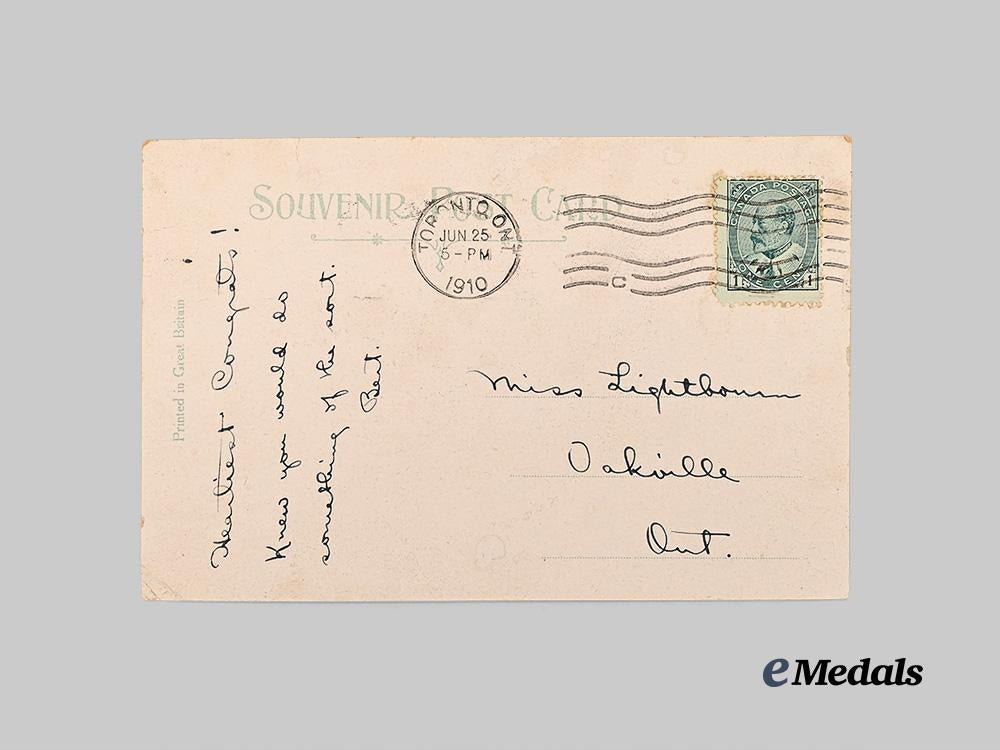 SOUVENIR POST CARD
TORONTO, ONT
JUN 25
5-PM
1910
C
CANADA POSTAGE
1 ONE CENT 1
Printed in Great Britain
Heartiest Congrats!
Knew you would do
something of the sort.
Bert.
Miss Lightbourn
Oakville
Ont.
eMedals